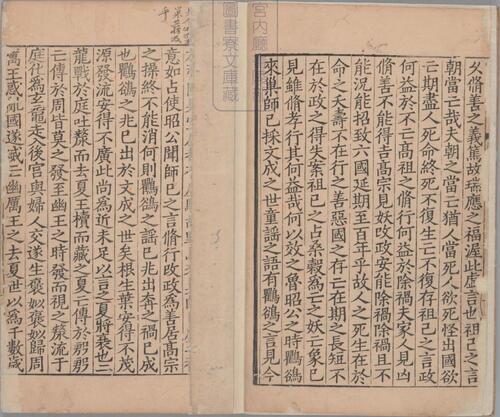 久脩善之義篤故瑞應之福渥此虛言也祖己之言
朝當亡哉夫朝之當亡猶人當死人欲死怪出國欲
亡期盡人死命終死不復生亡不復存祖己之言政
何益於不亡高祖之脩行何益於除禍夫家人見凶
脩善不能得吉高宗見妖改政安能除禍除禍且不
能況能招致六國延期至百年乎故人之死生在於
命之夭壽不在行之善惡國之存亡在期之長短不
在於政之得失案祖己之占桑穀為亡之妖亡象已
見雖脩孝行其何益哉何以效之魯昭公之時鸜鵒
來巢師己採文成之世童謠之語有鸜鵒之言見今
宮內廳
圖書寮文庫藏
意如占使昭公聞師己之言脩行改政為善居高宗
之操終不能消何則鸜鵒之謡已兆出奔之禍已成
也鸜鵒之兆已出於文成之世矣根生葉安得不茂
源發流安得不廣此尚為近未足以言之夏將衰也二
龍戰於庭吐漦而去夏王櫝而藏之夏亡傳於殷殷
亡傳於周皆莫之發至幽王之時發而視之漦流于
庭化為玄黿走入後宮與婦人交遂生褒姒褒姒歸周
厲王惑亂國遂滅亡幽厲王之去夏世以為千數歲